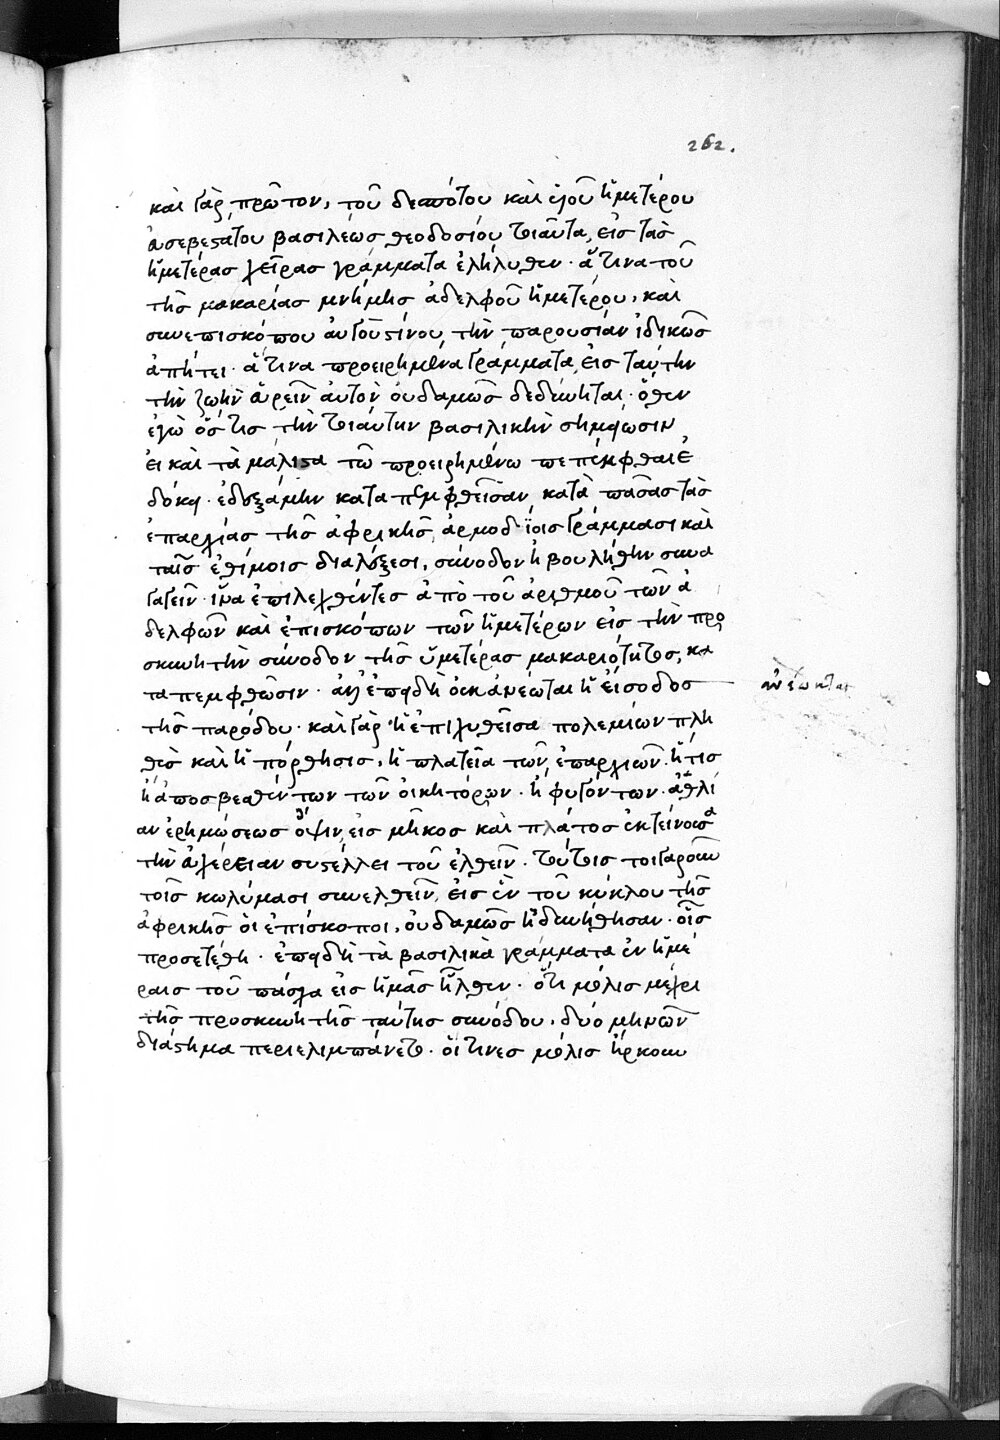 262.
καὶ γὰρ πρῶτον, τοῦ δεσπότου καὶ ὑιοῦ ἡμετέρου
ἀσεβεστάτου βασιλέως θεοδοσίου τοιαῦτα, εἰς τὰς
ἡμετέρας χεῖρας γράμματα ἐλήλυθεν· ἅτινα τοῦ
τῆς μακαρίας μνήμης ἀδελφοῦ ἡμετέρου, καὶ
συνεπισκόπου ἀυγουστίνου, τὴν παρουσίαν ἰδικῶς
ἀπῄτει· ἅτινα προειρημένα γράμματα, εἰς ταύτην
τὴν ζωὴν ἁυρεῖν ἀυτὸν ὀυδαμῶς δεδύνηται· ὅθεν
ἐγὼ ὅς τις τὴν τοιαύτην βασιλικὴν σημφωσιν
ἐι καὶ τὰ μάλιστα τῶ προειρημένω πεπέμφθαι ἐ
δόκη· ἐδεξάμην καταπεμφθεῖσαν κατὰ πάσας τὰς
ἐπαρχίας τῆς ἀφρικῆς, ἁρμοδίοις γράμμασι καὶ
ταῖς ἐθίμοις διαλέξεσι, σύνοδον ἠβουλήθην συνα
γαγεῖν· ἵνα ἐπιλεχθέντες ἀπὸ τοῦ ἀριθμοῦ τῶν ἀ
δελφῶν καὶ ἐπισκόπων τῶν ἡμετέρων εἰς τὴν προ
σκυνητὴν σύνοδον τῆς ὑμετέρας μακαριότητος, κα
ταπεμφθῶσιν· ἀλλ' ἐπειδὴ ὀυκ ἀνέωται ἡ εἴσοδος
ἀνέωκται
τῆς παρόδου· καὶ γὰρ ἡ ἐπιχυθεῖσα πολεμίων πλη
θὺς καὶ ἡ πόρθησις, ἡ πλατεῖα τῶν ἐπαρχιῶν· ἥτις
ἢ ἀποσβεσθέντων τῶν οἰκητόρων· ἢ φυγόντων· ἀθλί
αν ἐρημώσεως ὄψιν εἰς μῆκος καὶ πλάτος ἐκτείνουσα
τὴν ἀχέρειαν συστέλλει τοῦ ἐλθεῖν· τούτοις τοιγαροῦν
τοῖς κωλύμασι συνελθεῖν, εἰς ἓν τοῦ κύκλου τῆς
ἀφρικῆς ὁι ἐπίσκοποι, ὀυδαμῶς ἠδυνήθησαν· οἷς
προσετέθη· ἐπειδὴ τὰ βασιλικὰ γράμματα ἐν ἡμέ
ραις τοῦ πάσχα εἰς ἡμᾶς ἦλθεν· ὅτι μόλις μέχρι
τῆς προσκυνητῆς ταύτης συνόδου, δύο μηνῶν
διάστημα περιελιμπάνετο· ὅιτινες μόλις ἤρκουν